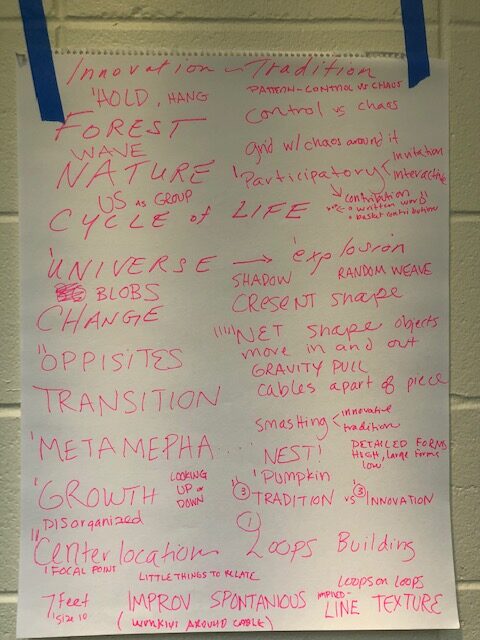 Innovation - Tradition
'HOLD, HANG
PATTERN - CONTROL VS CHAOS
FOREST
Control vs chaos
WAVE
grid w/ chaos around it
NATURE
'Participatory < Invitation
Interactive
US AS GROUP
contribution
• written word
• basket contribution
CYCLE of LIFE
'UNIVERSE → 'explosion
SHADOW RANDOM WEAVE
BLOBS
CRESENT Shape
CHANGE
'''''NET Shape objects
move in and out
''OPPISITES
GRAVITY PULL
cables apart of piece
TRANSITION
smashing < innovative
tradition
'METAMEPHA....
NEST!
DETAILED FORMS
HIGH, large forms
low
'Pumpkin
'GROWTH
LOOKING
UP or
DOWN
③ TRADITION vs ③ INNOVATION
Disorganized
①
''Center location
Loops Building
' FOCAL POINT
LITTLE THINGS TO RELATE
Loops on loops
7 Feet
' Size 10
IMPROV SPONTANIOUS
IMPLIED -
LINE TEXTURE
(WORKING AROUND CABLE)